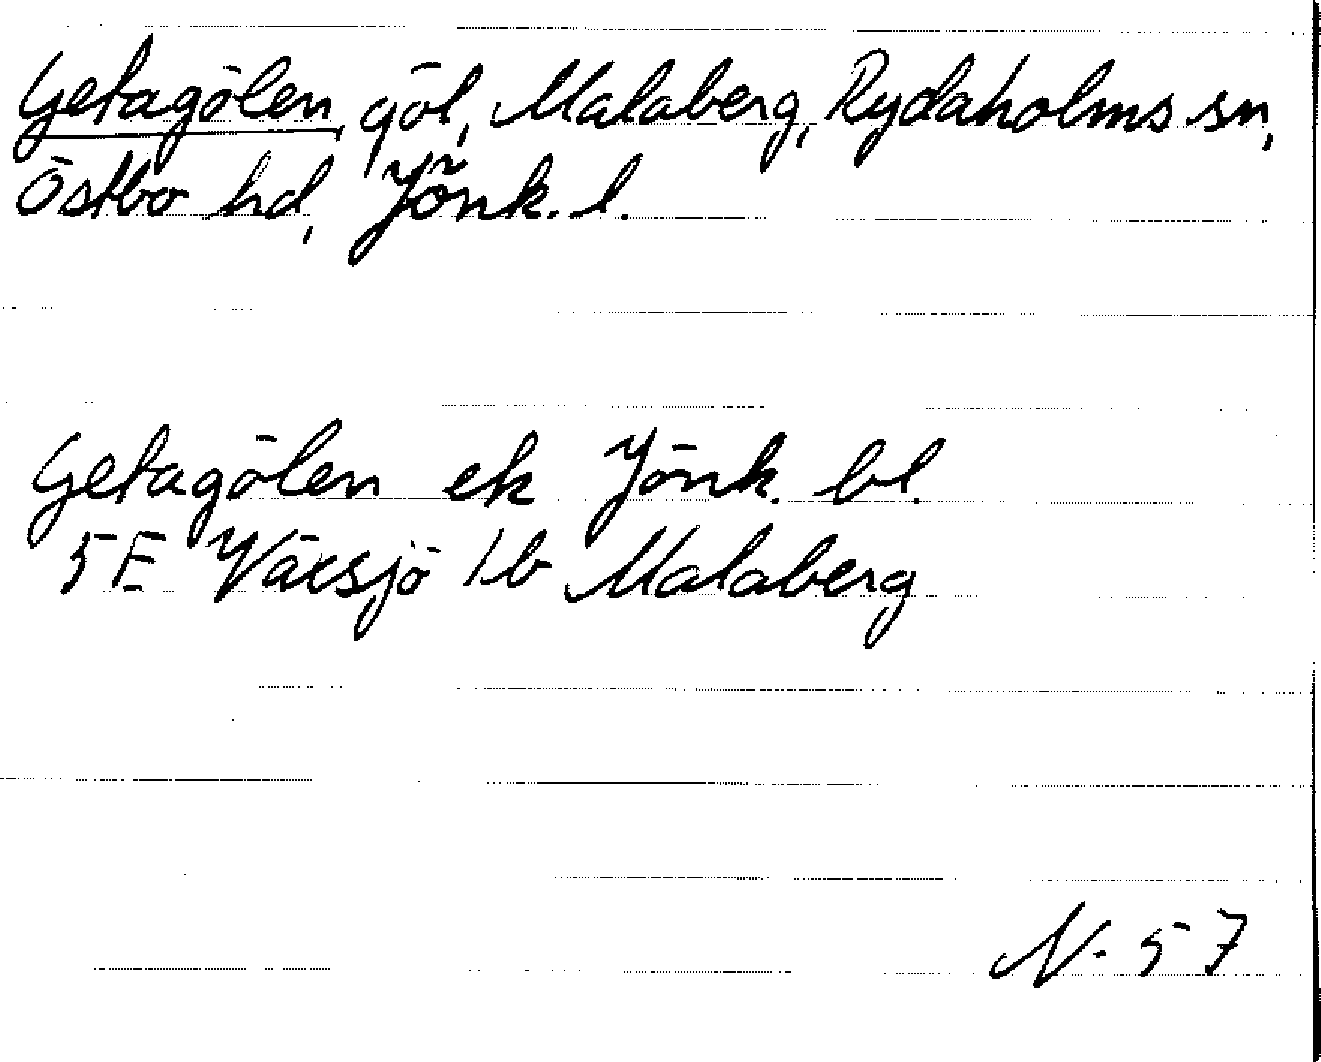 Getagölen, göl, Malaberg, Rydaholms sn,
Östbo hd, Jönk. l.
Getagölen ek Jönk. bl.
5E Växsjö Malaberg
N. 57